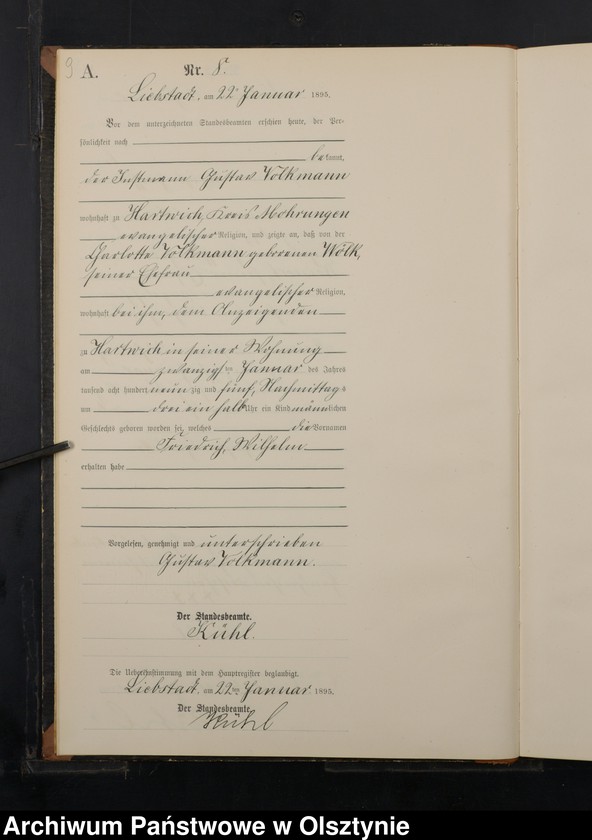 9
A.
Nr. 8.
Liebstadt, am 22ten Januar 1895.
Vor dem unterzeichneten Standesbeamten erschien heute, der Per-
sönlichkeit nach
be kannt,
der Instmann Gustav Volkmann
wohnhaft zu Hartwich, Kreis Mohrungen
evangelischer Religion, und zeigte an, daß von der
Charlotte Volkmann geborenen Wölk,
seiner Ehefrau
evangelischer Religion,
wohnhaft bei ihm, dem Anzeigenden
zu Hartwich in seiner Wohnung
am zwanzigsten Januar des Jahres
tausend acht hundert neun zig und fünf, Nachmittags
um drei ein halb Uhr ein Kind männlichen
Geschlechts geboren worden sei, welches die Vornamen
Friedrich, Wilhelm
erhalten habe
Vorgelesen, genehmigt und unterschrieben
Gustav Volkmann.
Der Standesbeamte.
Kühl.
Die Uebereinstimmung mit dem Hauptregister beglaubigt.
Liebstadt, am 22ten Januar 1895.
Der Standesbeamte.
Kühl
Archiwum Państwowe w Olsztynie